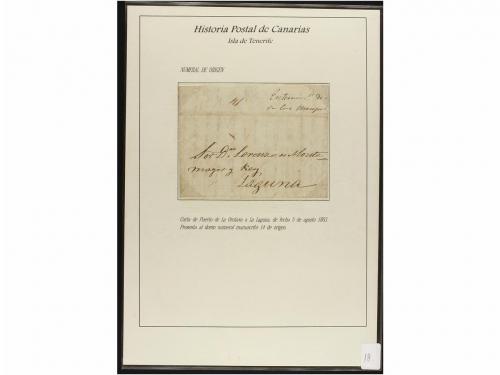 Historia Postal de Canarias
Isla de Tenerife
NUMERAL DE ORIGEN
Sor Dn Lorenzo Monte-
mayor y Key,
Laguna
Carta de Puerto de La Orotava a La Laguna, de fecha 5 de agosto
Presenta al dorso numeral manuscrito 14 de origen
18